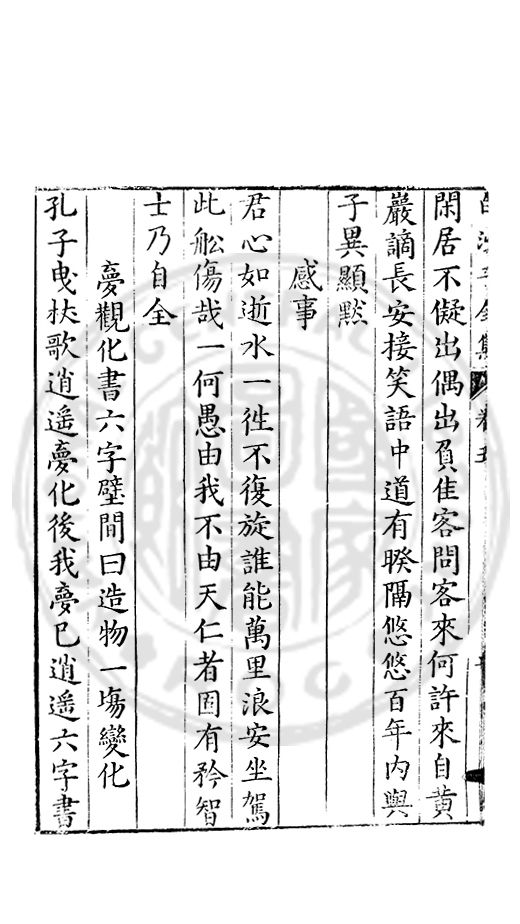 白沙子全集 卷五
閑居不儗出偶出負佳客問客來何許來自黃
巖謫長安接笑語中道有睽隔悠悠百年内與
子異顯默
感事
君心如逝水一徃不復旋誰能萬里浪安坐駕
此舩傷哉一何愚由我不由天仁者固有矜智
士乃自全
夢觀化書六字壁間曰造物一塲變化
孔子曳杖歌逍遥夢化後我夢巳逍遥六字書